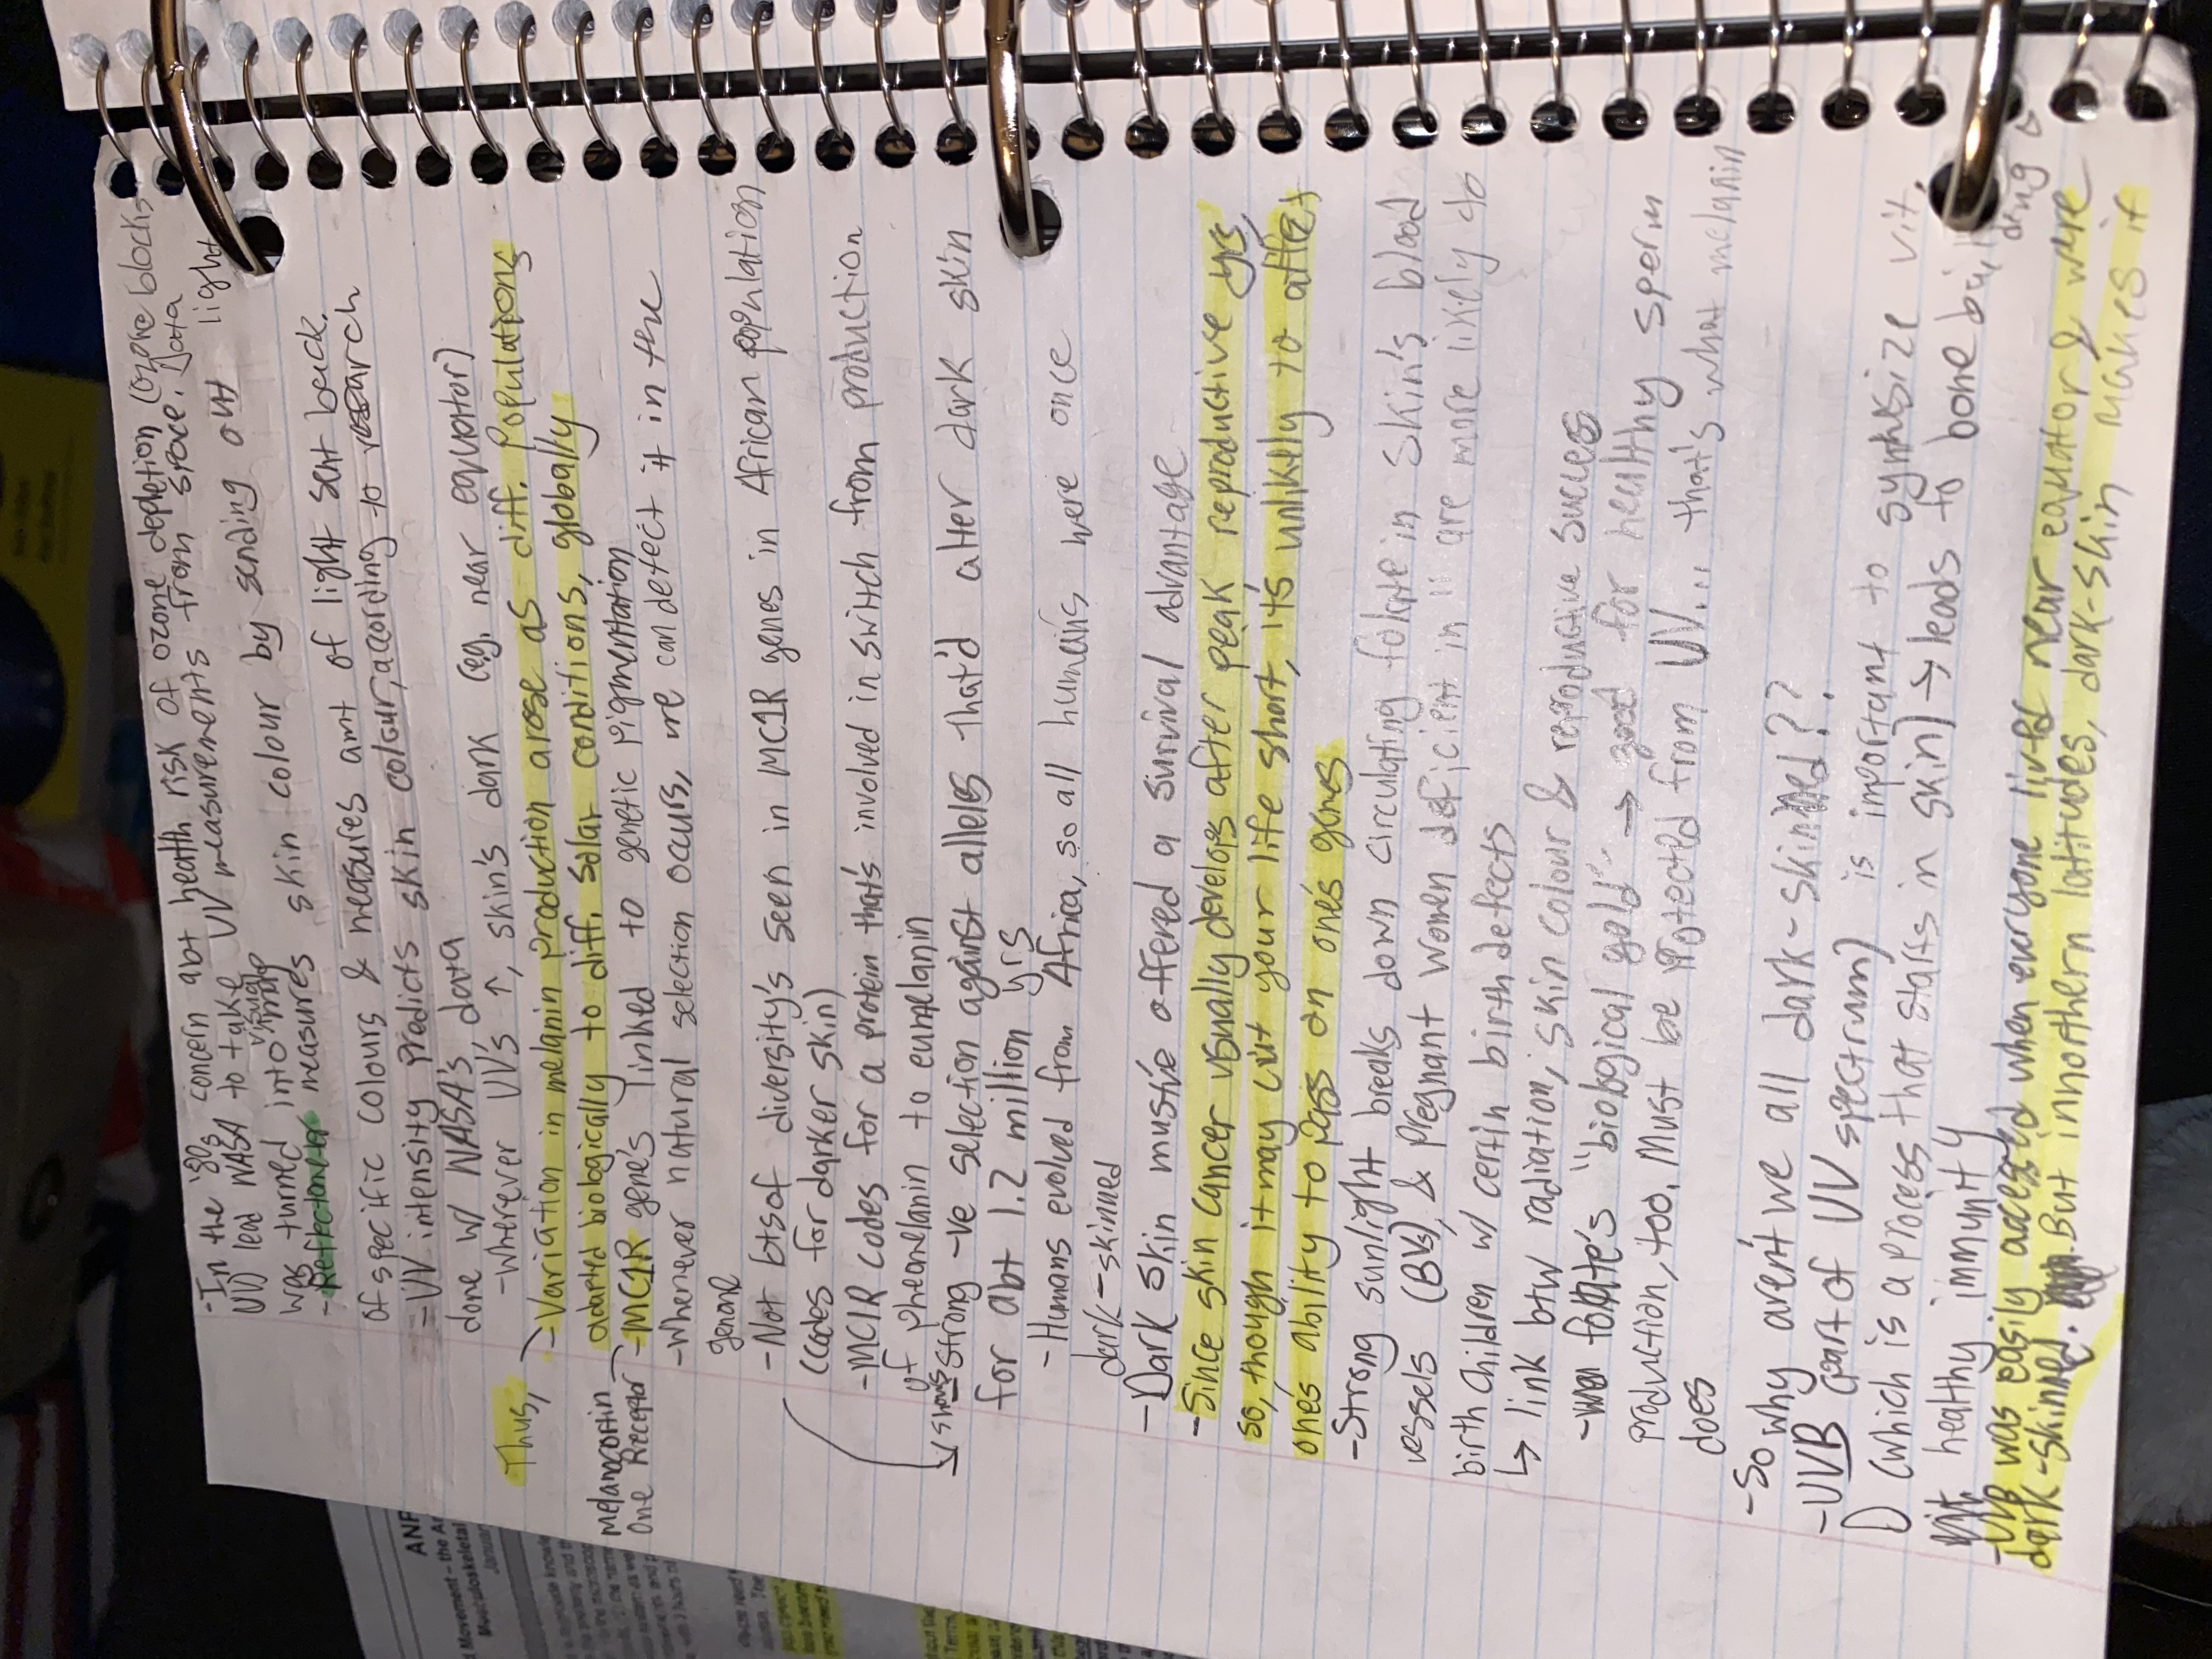 -In the '80s concern abt health risk of ozone depletion (ozone blocks
UV) lead NASA to take UV measurements from space. Data
was turned into visual map
-Reflectometer measures skin colour by sending out light
of specific colours & measures amt of light sent back.
-UV intensity predicts skin colour, according to research
done w/ NASA's data
-wherever UV's ↑, skin's dark (eg. near equator)
Thus, → -Variation in melanin production arose as diff. populations
adapted biologically to diff. solar conditions, globally
Melanocortin One Receptor → -MC1R gene's linked to genetic pigmentation
-Whenever natural selection occurs, we can detect it in the
genome
-Not lots of diversity's seen in MC1R genes in African population
(codes for darker skin)
-MC1R codes for a protein that's involved in switch from production
of pheomelanin to eumelanin
↳ shows strong -ve selection against alleles that'd alter dark skin
for abt 1.2 million yrs
-Humans evolved from Africa, so all humans were once
dark-skinned
-Dark skin must've offered a survival advantage
-Since skin cancer usually develops after peak reproductive yrs,
so, though it may cut your life short, it's unlikely to affect
ones ability to pass on one's genes
-Strong sunlight breaks down circulating folate in skin's blood
vessels (BVs), & pregnant women deficient in it are more likely to
birth children w/ certin birth defects
↳ link btw radiation, skin colour & reproductive success
- folate's "biological gold" → good for healthy sperm
production, too. Must be protected from UV... that's what melanin
does
-So why aren't we all dark-skinned??
-UVB (part of UV spectrum) is important to synthesize vit.
D (which is a process that starts in skin) → leads to bone building &
healthy immunity
-UVB was easily accessed when everyone lived near equator & were
dark-skinned. But in northern latitudes, dark-skin makes it